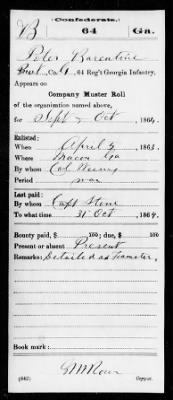 Confederate.
B 64 Ga.
Peter
Co. G, 64 Reg't Georgia Infantry.
Appears on
Company Muster Roll
of the organization named above,
for Sept & Oct, 1864.
Enlisted:
When April 2, 1863.
Where Macon Ga
By whom Col
Period war
Last paid:
By whom Capt Stone
To what time 31 Oct, 1864.
Bounty paid, $ 100; due, $ 100
Present or absent Present
Remarks: Detailed as Teamster.
Book mark:
(642) Copyist.